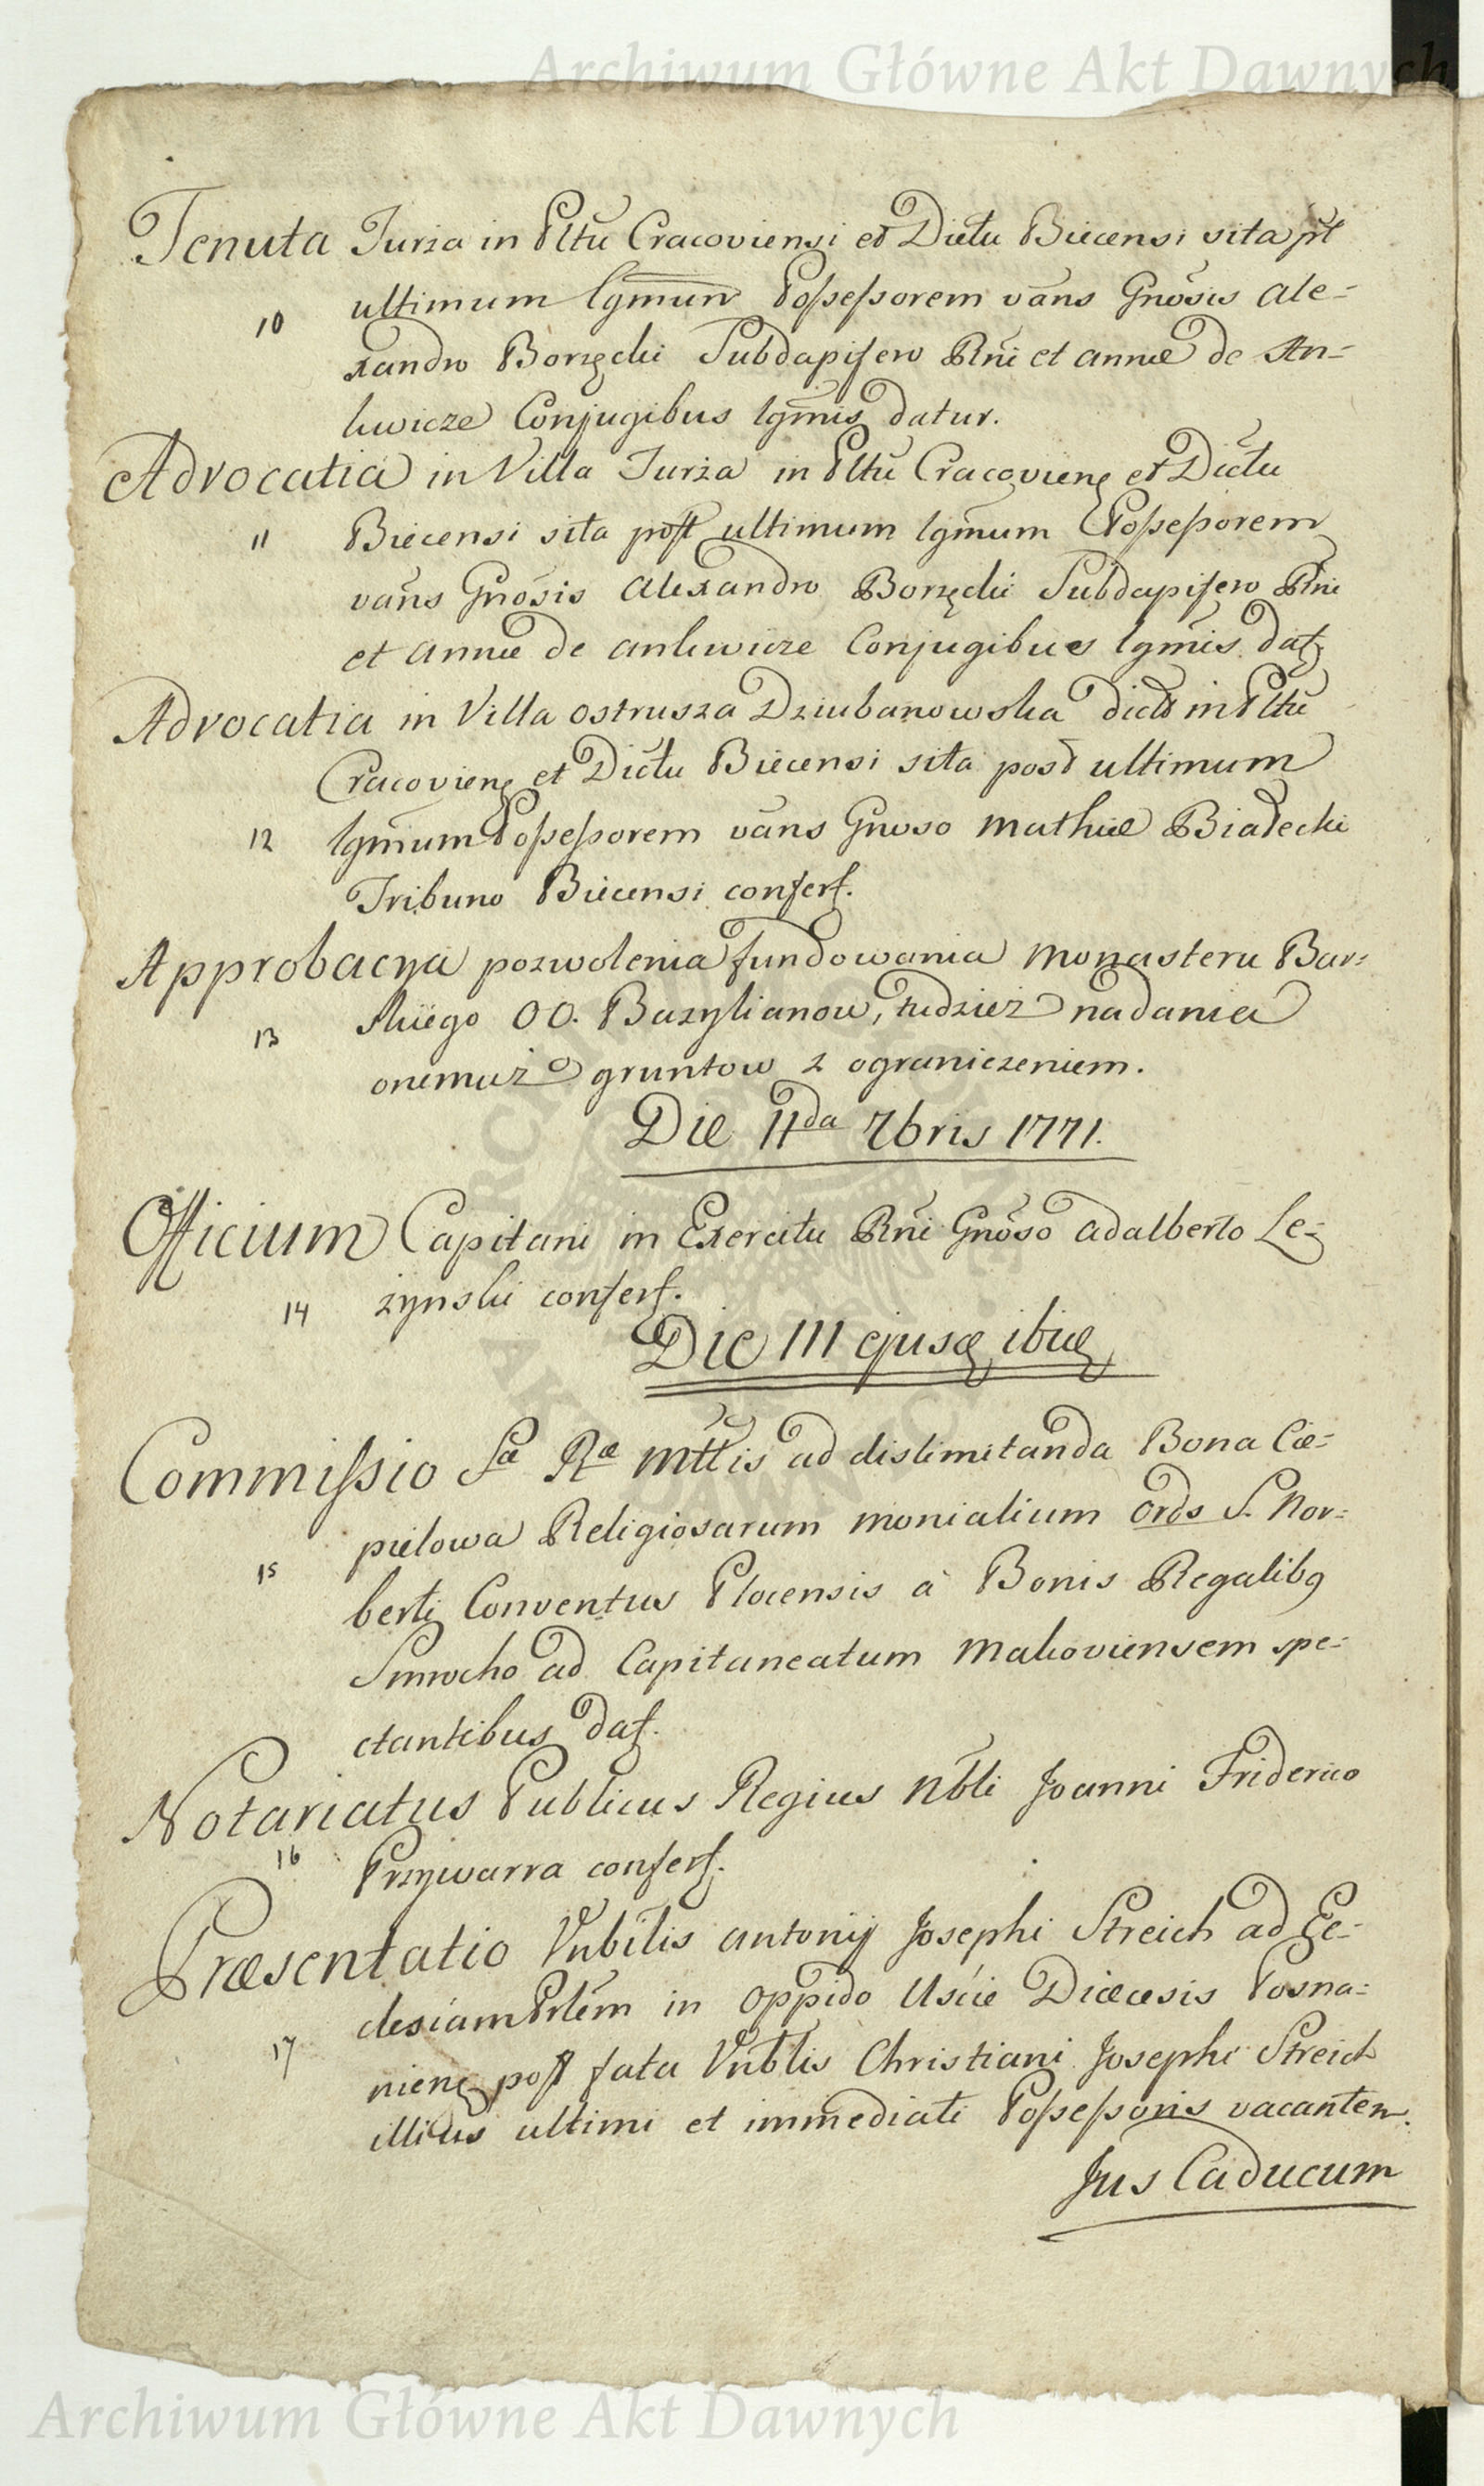 Archiwum Główne Akt Dawnych
Tenuta Jurza in Pltũ Cracoviensi et Dictu Biecensi sita pt
10 ultimum lgmum Possessorem vãns Gnõsis Ale=
xandro Borzęcki Subdapifero Rni et Annæ de An=
kwicze Conjugibus lgmis datur.
Advocatia in Villa Jurza in Pltũ Cracovienȩ et Dictu
11 Biecensi sita post ultimum lgmum Possessorem
vãns Gnõsis Alexandro Borzęcki Subdapifero Rni
et Annæ de Ankwicze Conjugibus lgmis datȩ
Advocatia in Villa Ostrusza Dziubanowska dicta in Pltũ
Cracovienȩ et Dictu Biecensi sita post ultimum
12 lgmum Possessorem vãns Gnoso Mathiæ Białecki
Tribuno Biecensi conferȩ.
Approbacya pozwolenia fundowania Monasteru Bar=
13 skiego OO. Bazylianow, tudzież nadania
onemuż gruntow z ograniczeniem.
Die IIda 7bris 1771.
Officium Capitani in Exercitu Rni Gnõso Adalberto Le=
14 zynski conferȩ.
Die III ejusȩ ibiȩ
Commissio Sæ Ræ Mttis ad dislimitanda Bona Cie=
15 pielowa Religiosarum Monialium Ords S. Nor=
berti Conventus Plocensis à Bonis Regalibȝ
Smrocko ad Capitaneatum Makoviensem spe=
ctantibus datȩ.
Notariatus Publicus Regius Nbli Joanni Friderico
16 Przywarra conferȩ.
Præsentatio Vnbilis Antonij Josephi Streich ad Ec=
clesiam Prlẽm in Oppido Uscie Diæcesis Posna=
17 nienȩ post fata Vnblis Christiani Josephi Streich
illius ultimi et immediati Possessoris vacantem.
Jus Caducum
Archiwum Główne Akt Dawnych